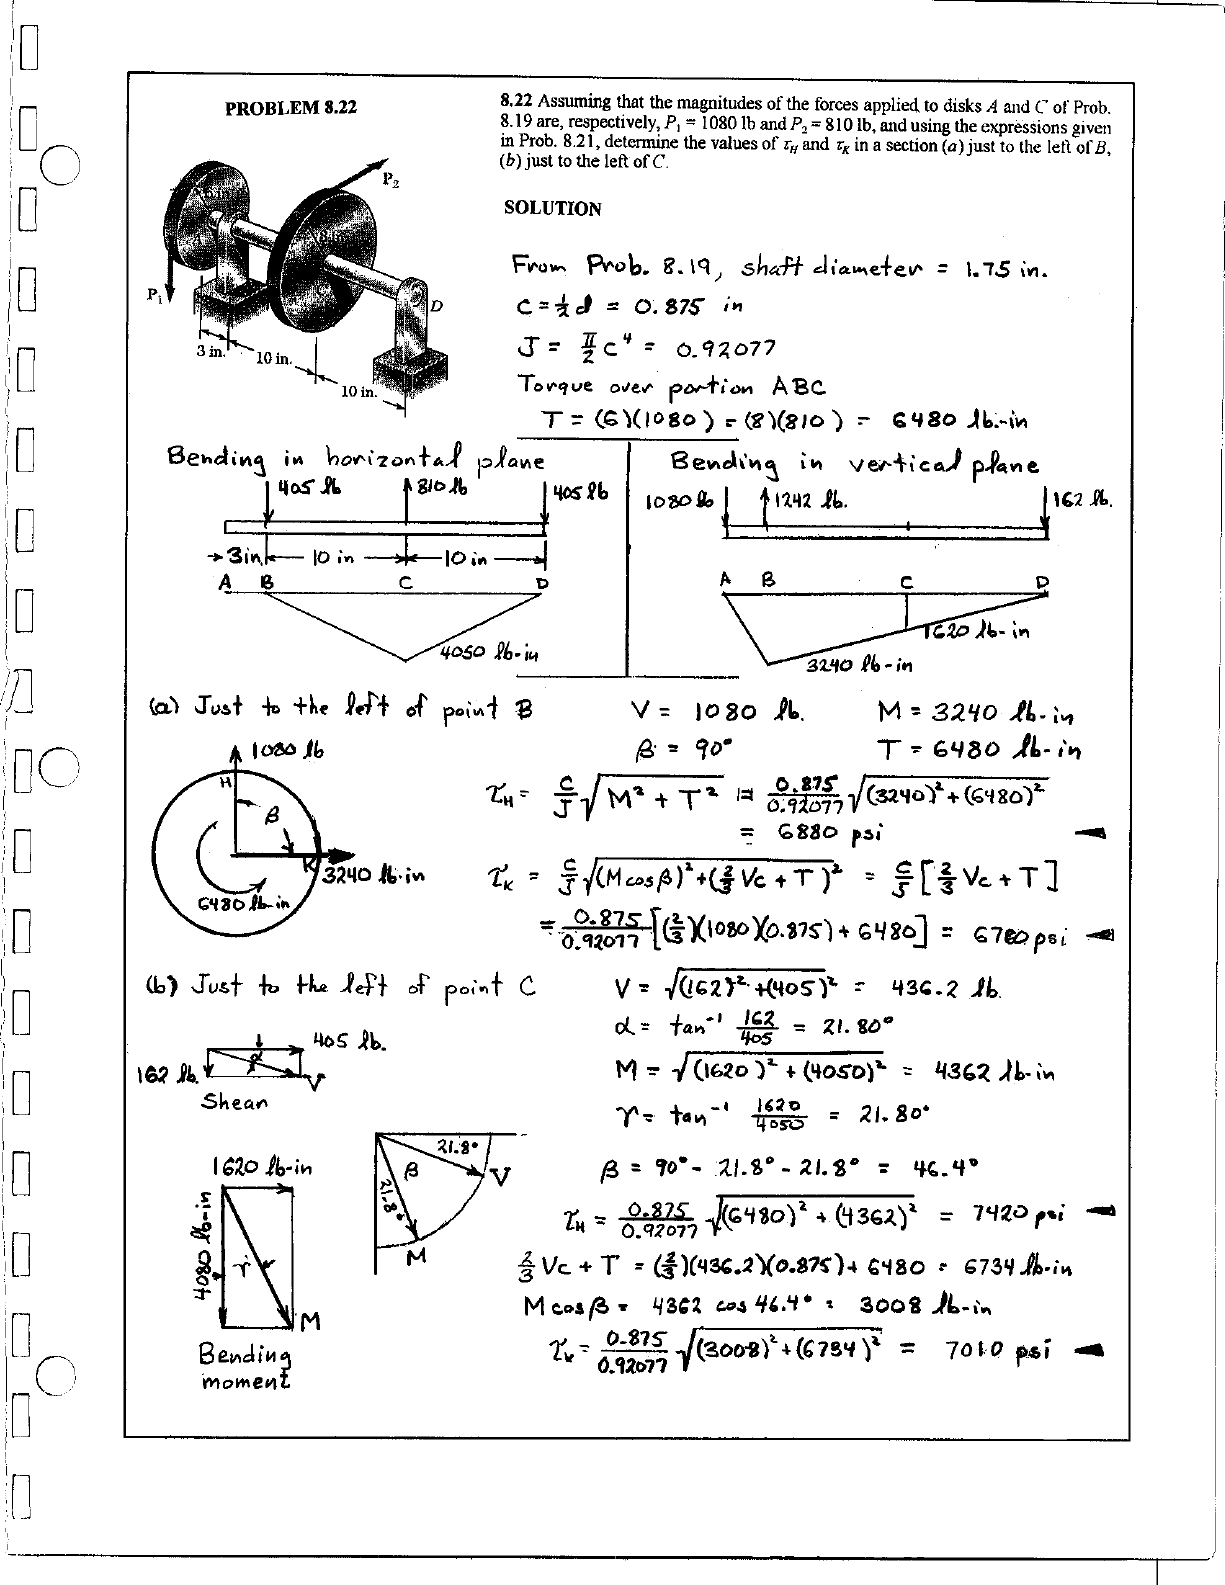 PROBLEM 8.22
8.22 Assuming that the magnitudes of the forces applied to disks A and C of Prob.
8.19 are, respectively, P₁ = 1080 lb and P₂ = 810 lb, and using the expressions given
in Prob. 8.21, determine the values of τ_H and τ_K in a section (a) just to the left of B,
(b) just to the left of C.
P₂
P₁
D
3 in.
10 in.
10 in.
SOLUTION
From Prob. 8.19, shaft diameter = 1.75 in.
C = ½ d = 0.875 in
J = π/2 c⁴ = 0.92077
Torque over portion ABC
T = (6)(1080) = (8)(810) = 6480 lb.-in
Bending in horizontal plane
405 lb 810 lb 405 lb
3in. 10 in 10 in
A B C D
4050 lb-in
Bending in vertical plane
1080 lb 1242 lb. 162 lb.
A B C D
1620 lb-in
3240 lb-in
(a) Just to the left of point B
V = 1080 lb. M = 3240 lb-in
β = 90° T = 6480 lb-in
1080 lb
H
β
K
3240 lb·in
6480 lb-in
τ_H = c/J √(M² + T²) = 0.875/0.92077 √((3240)² + (6480)²)
= 6880 psi
τ_K = c/J √((M cos β)² + (⅔ Vc + T)²) = c/J [⅔ Vc + T]
= 0.875/0.92077 [(⅔)(1080)(0.875) + 6480] = 6780 psi
(b) Just to the left of point C
V = √((162)² + (405)²) = 436.2 lb.
α = tan⁻¹ 162/405 = 21.80°
M = √((1620)² + (4050)²) = 4362 lb-in
γ = tan⁻¹ 1620/4050 = 21.80°
405 lb.
α
162 lb.
V
Shear
1620 lb-in
4080 lb-in
γ
M
Bending
moment
21.8°
β
21.8°
V
M
β = 90° - 21.8° - 21.8° = 46.4°
τ_H = 0.875/0.92077 √((6480)² + (4362)²) = 7420 psi
⅔ Vc + T = (⅔)(436.2)(0.875) + 6480 = 6734 lb-in
M cos β = 4362 cos 46.4° = 3008 lb-in
τ_K = 0.875/0.92077 √((3008)² + (6734)²) = 7010 psi